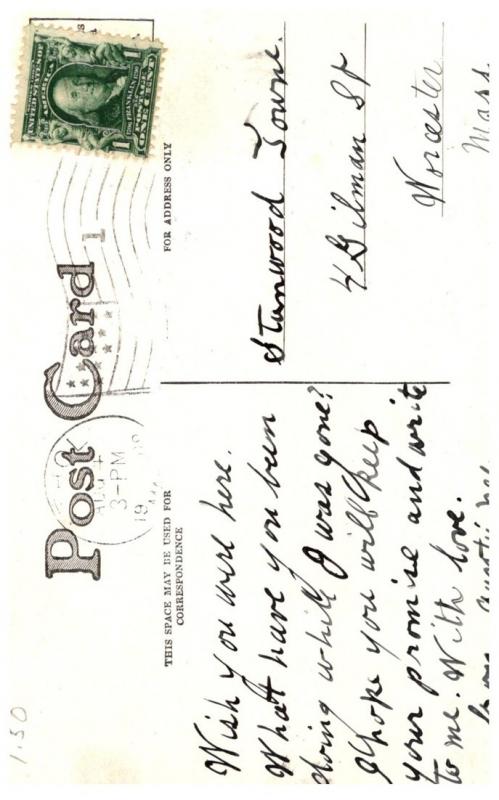 1.50
Post Card
FOR ADDRESS ONLY
THIS SPACE MAY BE USED FOR
CORRESPONDENCE
3-PM
19
1
UNITED STATES OF
AMERICA
1
1
BENJ. FRANKLIN
POSTAGE
ONE CENT
Wish you were here.
What have you been
doing while I was gone?
I hope you will keep
your promise and write
to me. With love.
Stanwood Towne.
4 Gilman St
Worcester
Mass.